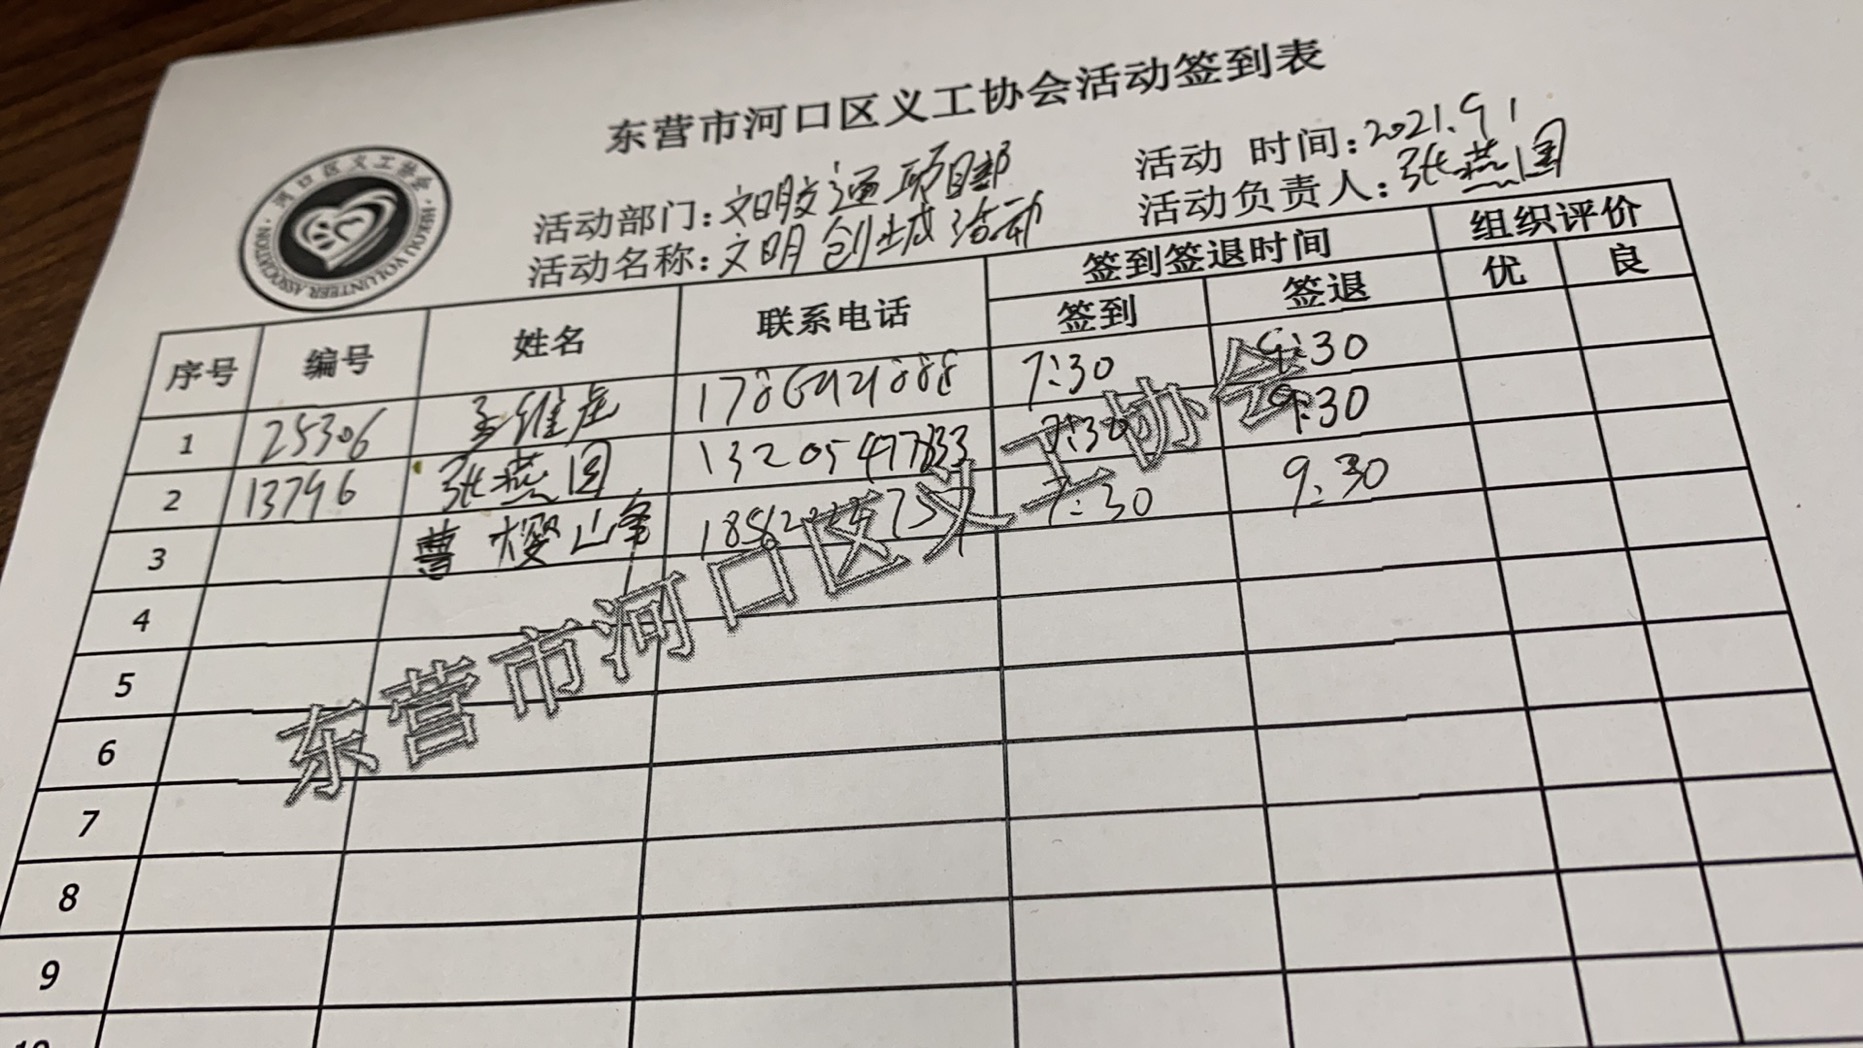 东营市河口区义工协会活动签到表
河口区义工协会
HEKOU VOLUNTEER ASSOCIATION
活动部门：文明交通项目部
活动时间：2021.9 1
活动名称：文明创城活动
活动负责人：张燕国
序号 编号 姓名 联系电话 签到签退时间 组织评价
签到 签退 优 良
1 25306 7:30 9:30
2 13796 张燕国 7:30 9:30
3 曹樱山峰 7:30 9:30
4
5
6
7
8
9
10
东营市河口区义工协会